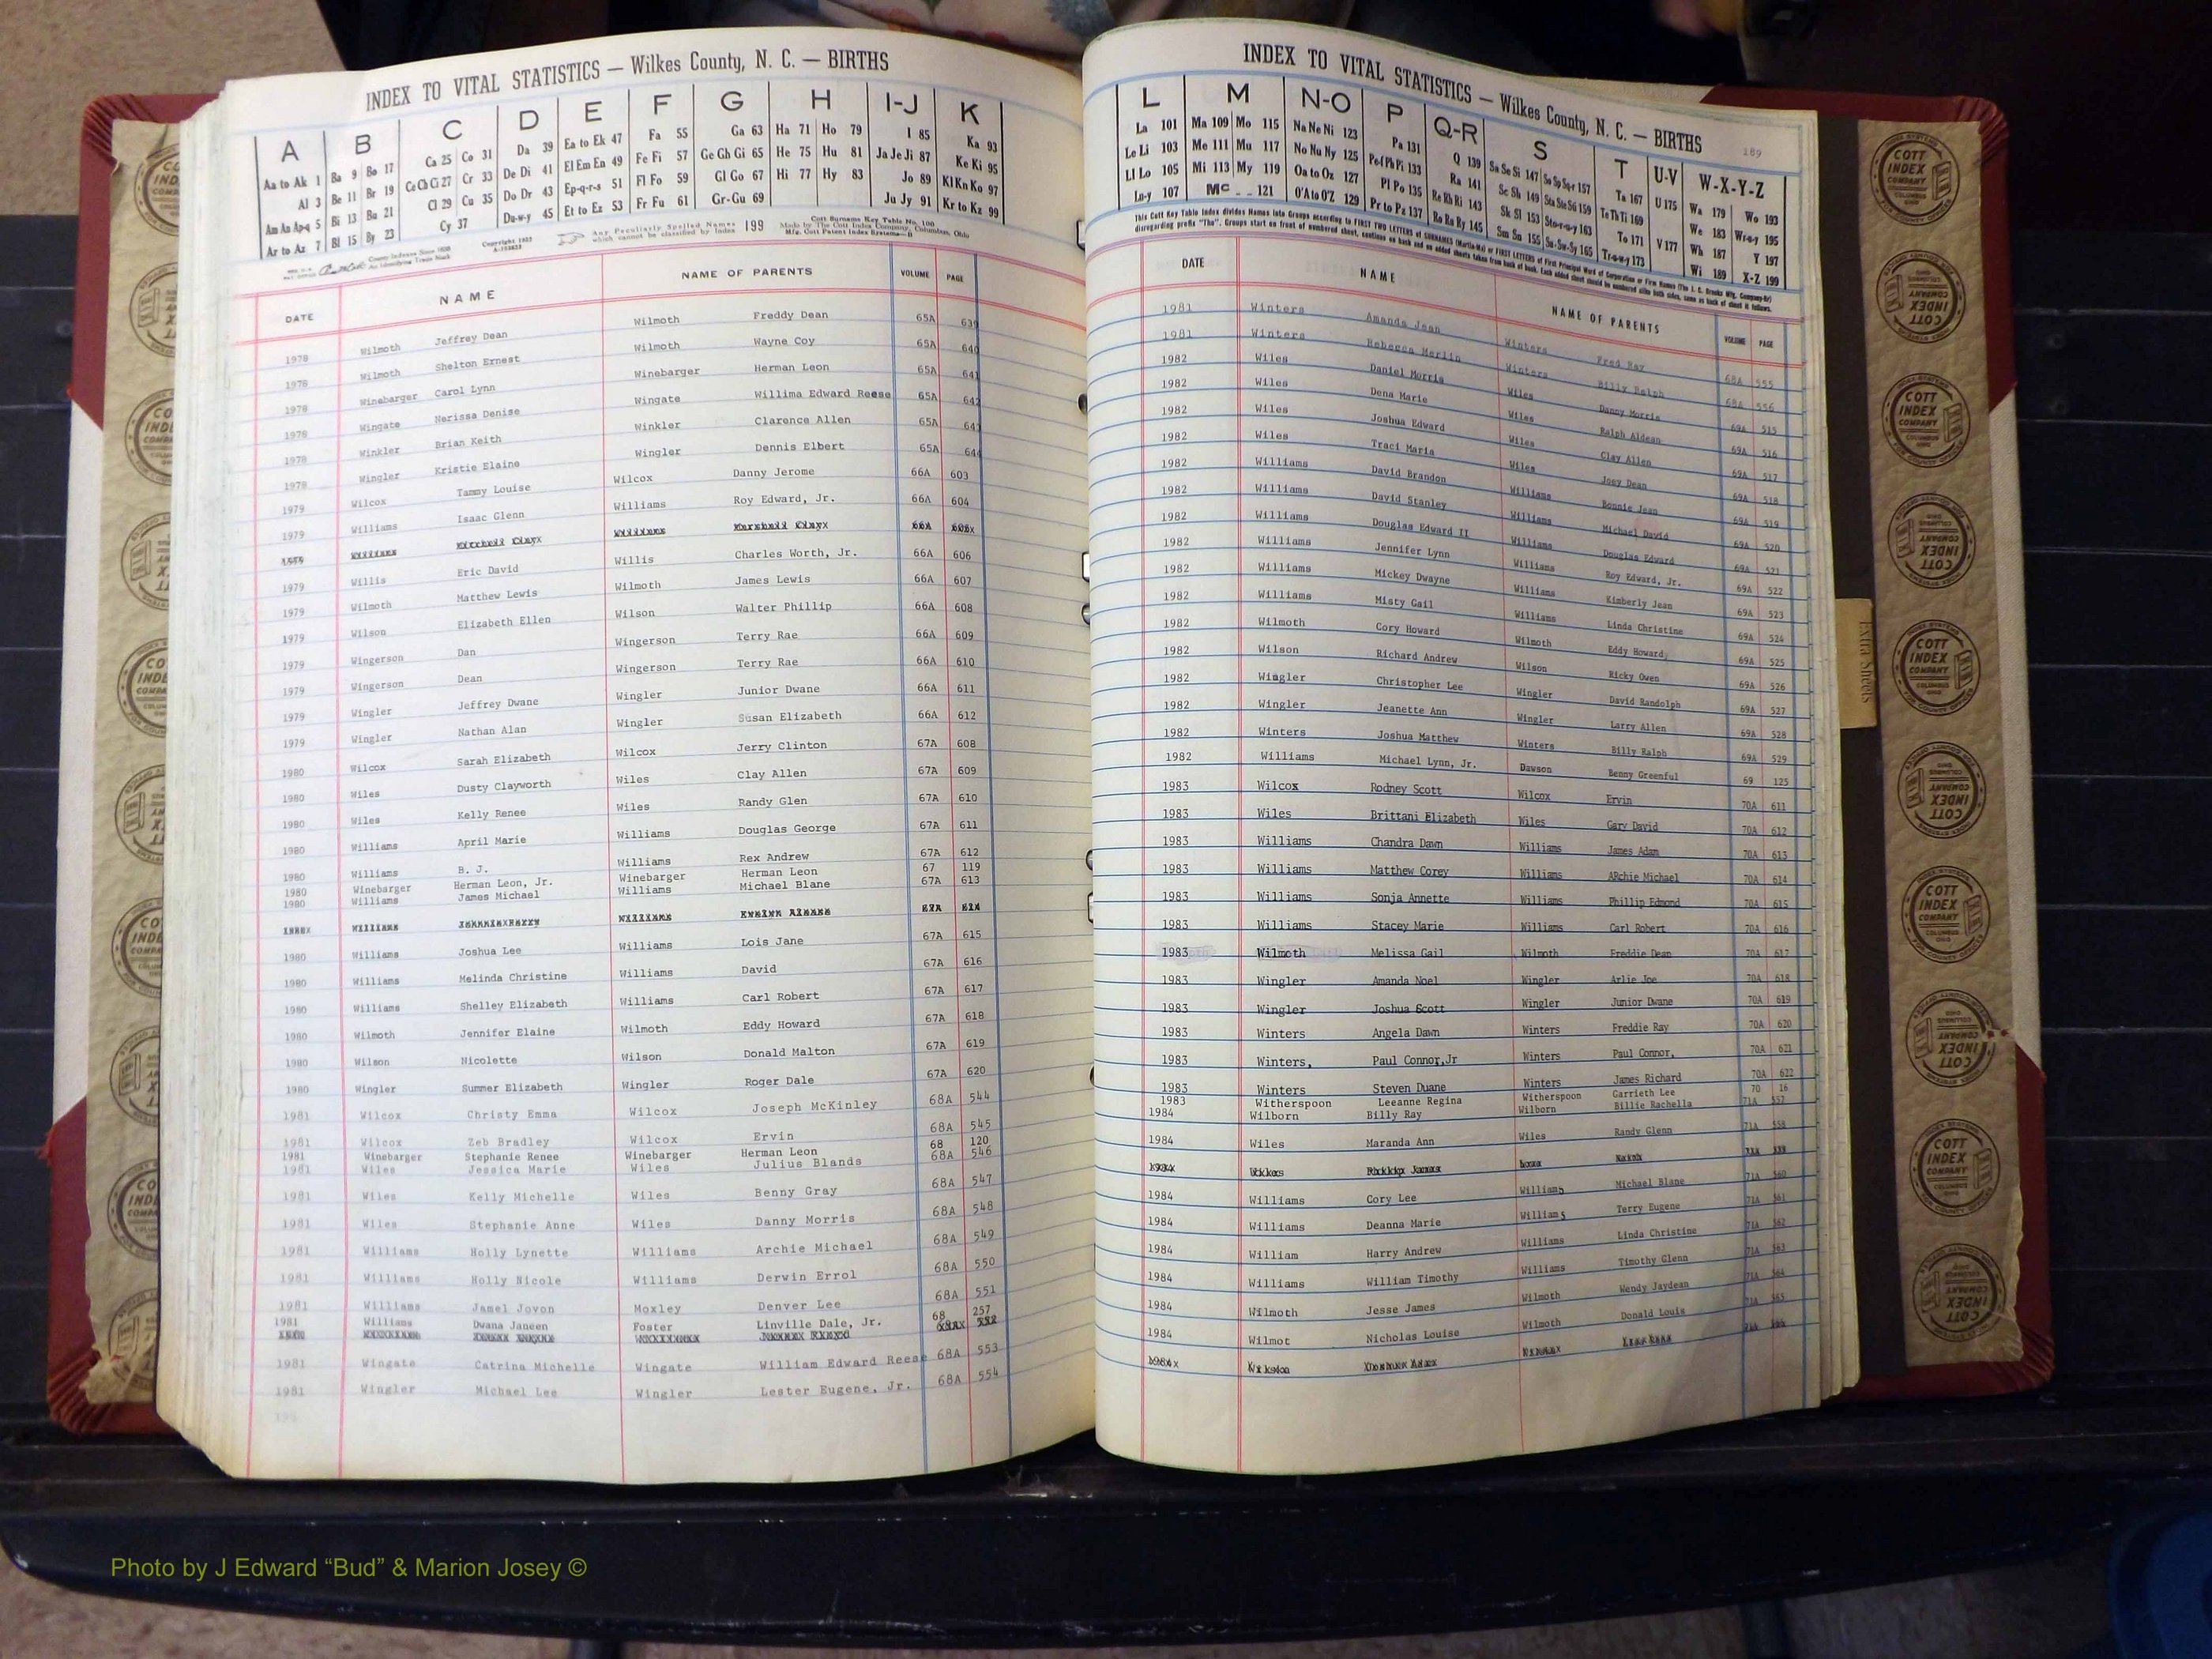 INDEX TO VITAL STATISTICS — Wilkes County, N. C. — BIRTHS
A B C D E F G H I-J K
Aa to Ak 1 Ba 9 Bo 17 Ca 25 Co 31 Da 39 Ea to Ek 47 Fa 55 Ga 63 Ha 71 Ho 79 I 85 Ka 93
Al 3 Be 11 Br 19 Ce Ch Ci 27 Cr 33 De Di 41 El Em En 49 Fe Fi 57 Ge Gh Gi 65 He 75 Hu 81 Ja Je Ji 87 Ke Ki 95
Am An Ap-q 5 Bi 13 Bu 21 Cl 29 Cu 35 Do Dr 43 Ep-q-r-s 51 Fl Fo 59 Gl Go 67 Hi 77 Hy 83 Jo 89 Kl Kn Ko 97
Ar to Az 7 Bl 15 By 23 Cy 37 Du-w-y 45 Et to Ez 53 Fr Fu 61 Gr-Gu 69 Ju Jy 91 Kr to Kz 99
Any Peculiarly Spelled Names which cannot be classified by Index 199
DATE NAME NAME OF PARENTS VOLUME PAGE
1978 Wilmoth Jeffrey Dean Wilmoth Freddy Dean 65A 639
1978 Wilmoth Shelton Ernest Wilmoth Wayne Coy 65A 640
1978 Winebarger Carol Lynn Winebarger Herman Leon 65A 641
1978 Wingate Nerissa Denise Wingate Willima Edward Reese 65A 642
1978 Winkler Brian Keith Winkler Clarence Allen 65A 643
1978 Wingler Kristie Elaine Wingler Dennis Elbert 65A 644
1979 Wilcox Tammy Louise Wilcox Danny Jerome 66A 603
1979 Williams Isaac Glenn Williams Roy Edward, Jr. 66A 604
1979 Willis Eric David Willis Charles Worth, Jr. 66A 606
1979 Wilmoth Matthew Lewis Wilmoth James Lewis 66A 607
1979 Wilson Elizabeth Ellen Wilson Walter Phillip 66A 608
1979 Wingerson Dan Wingerson Terry Rae 66A 609
1979 Wingerson Dean Wingerson Terry Rae 66A 610
1979 Wingler Jeffrey Dwane Wingler Junior Dwane 66A 611
1979 Wingler Nathan Alan Wingler Susan Elizabeth 66A 612
1980 Wilcox Sarah Elizabeth Wilcox Jerry Clinton 67A 608
1980 Wiles Dusty Clayworth Wiles Clay Allen 67A 609
1980 Wiles Kelly Renee Wiles Randy Glen 67A 610
1980 Williams April Marie Williams Douglas George 67A 611
1980 Williams B. J. Williams Rex Andrew 67A 612
1980 Winebarger Herman Leon, Jr. Winebarger Herman Leon 67 119
1980 Williams James Michael Williams Michael Blane 67A 613
1980 Williams Joshua Lee Williams Lois Jane 67A 615
1980 Williams Melinda Christine Williams David 67A 616
1980 Williams Shelley Elizabeth Williams Carl Robert 67A 617
1980 Wilmoth Jennifer Elaine Wilmoth Eddy Howard 67A 618
1980 Wilson Nicolette Wilson Donald Malton 67A 619
1980 Wingler Summer Elizabeth Wingler Roger Dale 67A 620
1981 Wilcox Christy Emma Wilcox Joseph McKinley 68A 544
1981 Wilcox Zeb Bradley Wilcox Ervin 68A 545
1981 Winebarger Stephanie Renee Winebarger Herman Leon 68 120
1981 Wiles Jessica Marie Wiles Julius Blands 68A 546
1981 Wiles Kelly Michelle Wiles Benny Gray 68A 547
1981 Wiles Stephanie Anne Wiles Danny Morris 68A 548
1981 Williams Holly Lynette Williams Archie Michael 68A 549
1981 Williams Holly Nicole Williams Derwin Errol 68A 550
1981 Williams Jamel Jovon Moxley Denver Lee 68A 551
1981 Williams Dwana Janeen Foster Linville Dale, Jr. 68 257
1981 Wingate Catrina Michelle Wingate William Edward Reese 68A 553
1981 Wingler Michael Lee Wingler Lester Eugene, Jr. 68A 554
INDEX TO VITAL STATISTICS — Wilkes County, N. C. — BIRTHS
189
L M N-O P Q-R S T U-V W-X-Y-Z
La 101 Ma 109 Mo 115 Na Ne Ni 123 Pa 131 Q 139 Sa Se Si 147 So Sp Sq-r 157 Ta 167 U 175 Wa 179 Wo 193
Le Li 103 Me 111 Mu 117 No Nu Ny 125 Pe-f Ph Pi 133 Ra 141 Sc Sh 149 Sta Ste Sti 159 Te Th Ti 169 V 177 We 183 Wr-o-y 195
Ll Lo 105 Mi 113 My 119 Oa to Oz 127 Pl Po 135 Re Rh Ri 143 Sk Sl 153 Sto-r-u-y 163 To 171 Wh 187 Y 197
Lu-y 107 Mc 121 O'A to O'Z 129 Pr to Pz 137 Ro Ru Ry 145 Sm Sn 155 Su-Sw-Sy 165 Tr-u-w-y 173 Wi 189 X-Z 199
DATE NAME NAME OF PARENTS VOLUME PAGE
1981 Winters Amanda Jean Winters Fred Ray 68A 555
1981 Winters Rebecca Merlin Winters Billy Ralph 68A 556
1982 Wiles Daniel Morris Wiles Danny Morris 69A 515
1982 Wiles Dena Marie Wiles Ralph Aldean 69A 516
1982 Wiles Joshua Edward Wiles Clay Allen 69A 517
1982 Wiles Traci Maria Wiles Joey Dean 69A 518
1982 Williams David Brandon Williams Bonnie Jean 69A 519
1982 Williams David Stanley Williams Michael David 69A 520
1982 Williams Douglas Edward II Williams Douglas Edward 69A 521
1982 Williams Jennifer Lynn Williams Roy Edward, Jr. 69A 522
1982 Williams Mickey Dwayne Williams Kimberly Jean 69A 523
1982 Williams Misty Gail Williams Linda Christine 69A 524
1982 Wilmoth Cory Howard Wilmoth Eddy Howard 69A 525
1982 Wilson Richard Andrew Wilson Ricky Owen 69A 526
1982 Wingler Christopher Lee Wingler David Randolph 69A 527
1982 Wingler Jeanette Ann Wingler Larry Allen 69A 528
1982 Winters Joshua Matthew Winters Billy Ralph 69A 529
1982 Williams Michael Lynn, Jr. Dawson Benny Greenful 69 125
1983 Wilcox Rodney Scott Wilcox Ervin 70A 611
1983 Wiles Brittani Elizabeth Wiles Gary David 70A 612
1983 Williams Chandra Dawn Williams James Adam 70A 613
1983 Williams Matthew Corey Williams ARchie Michael 70A 614
1983 Williams Sonja Annette Williams Phillip Edmond 70A 615
1983 Williams Stacey Marie Williams Carl Robert 70A 616
1983 Wilmoth Melissa Gail Wilmoth Freddie Dean 70A 617
1983 Wingler Amanda Noel Wingler Arlie Joe 70A 618
1983 Wingler Joshua Scott Wingler Junior Dwane 70A 619
1983 Winters Angela Dawn Winters Freddie Ray 70A 620
1983 Winters, Paul Connor,Jr Winters Paul Connor, 70A 621
1983 Winters Steven Duane Winters James Richard 70A 622
1983 Witherspoon Leeanne Regina Witherspoon Garrieth Lee 70 16
1984 Wilborn Billy Ray Wilborn Billie Rachella 71A 557
1984 Wiles Maranda Ann Wiles Randy Glenn 71A 558
1984 Williams Cory Lee Williams Michael Blane 71A 560
1984 Williams Deanna Marie Williams Terry Eugene 71A 561
1984 William Harry Andrew Williams Linda Christine 71A 562
1984 Williams William Timothy Williams Timothy Glenn 71A 563
1984 Wilmoth Jesse James Wilmoth Wendy Jaydean 71A 564
1984 Wilmot Nicholas Louise Wilmoth Donald Louis 71A 565
Extra Sheets
COTT INDEX COMPANY
Photo by J Edward “Bud” & Marion Josey ©